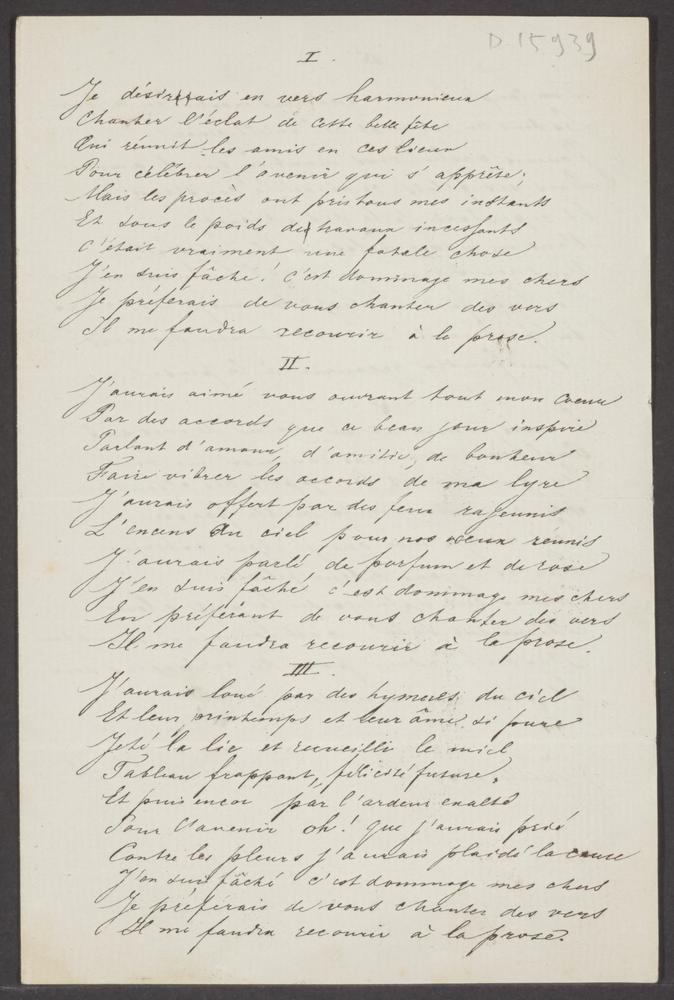 D. 15939
I.
Je désirerais en vers harmonieux
Chanter l'éclat de cette belle fête
Qui réunit les amis en ces lieux
Pour célébrer l'avenir qui s'apprête;
Mais les procès ont pris tous mes instants
Et sous le poids des travaux incessants
C'était vraiment une fatale chose
J'en suis fâché! c'est dommage mes chers
Je préférais de vous chanter des vers
Il me faudra recourir à la prose.
II.
J'aurais aimé vous ouvrant tout mon Coeur
Par des accords que ce beau jour inspire
Parlant d'amour, d'amitié, de bonheur
Faire vibrer les accords de ma lyre
J'aurais offert par des feux rajeunis
L'encens du ciel pour nos voeux reunis
J'aurais parlé, de parfum et de rose
J'en suis fâché, c'est dommage mes chers
En préférant de vous chanter des vers
Il me faudra recourir à la prose.
III.
J'aurais loué par des hymnes du ciel
Et leur printemps et leur âme si pure
Jeté la lie et recueilli le miel
Tableau frappant, félicité future,
Et puis encor par l'ardeur exalté
Pour l'avenir oh! que j'aurais prié
Contre les pleurs j'aurais plaidé la cause
J'en suis fâché c'est dommage mes chers
Je préférais de vous chanter des vers
Il me faudra recourir à la prose.